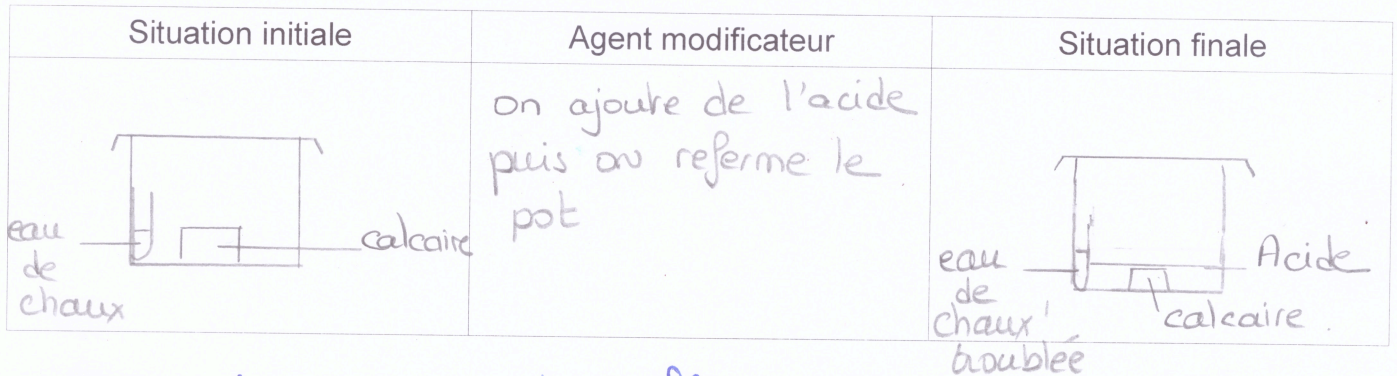 Situation initiale
Agent modificateur
Situation finale
eau
de
chaux
calcaire
on ajoute de l'acide
puis on referme le
pot
eau
de
chaux
troublée
Acide
calcaire